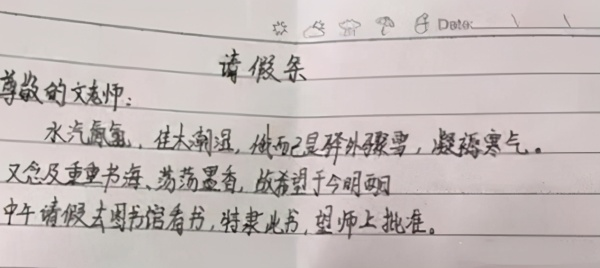 Date: \ \
请假条
尊敬的文老师:
水汽氤氲,佳木潮湿,俄而已是驿外骤雪,凝稀寒气。
又念及重重书海、荡荡墨香,故希望于今明两日
中午请假去图书馆看书,特隶此书,望师上批准。